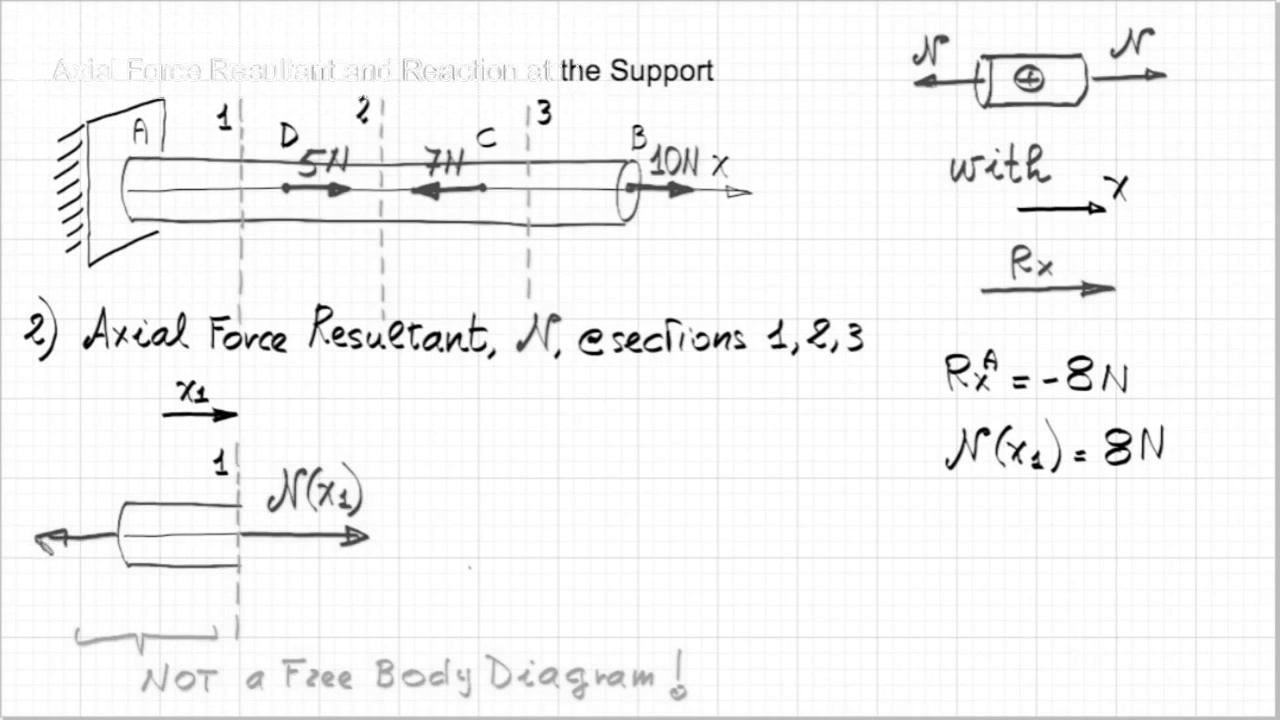 Axial Force Resultant and Reaction at the Support
N N
A 1 D 5N 2 7N C 3 B 10N x
with
x
Rx
2) Axial Force Resultant, N, @sections 1,2,3
RxA = -8N
x1
N(x1) = 8N
1 N(x1)
NOT a Free Body Diagram!